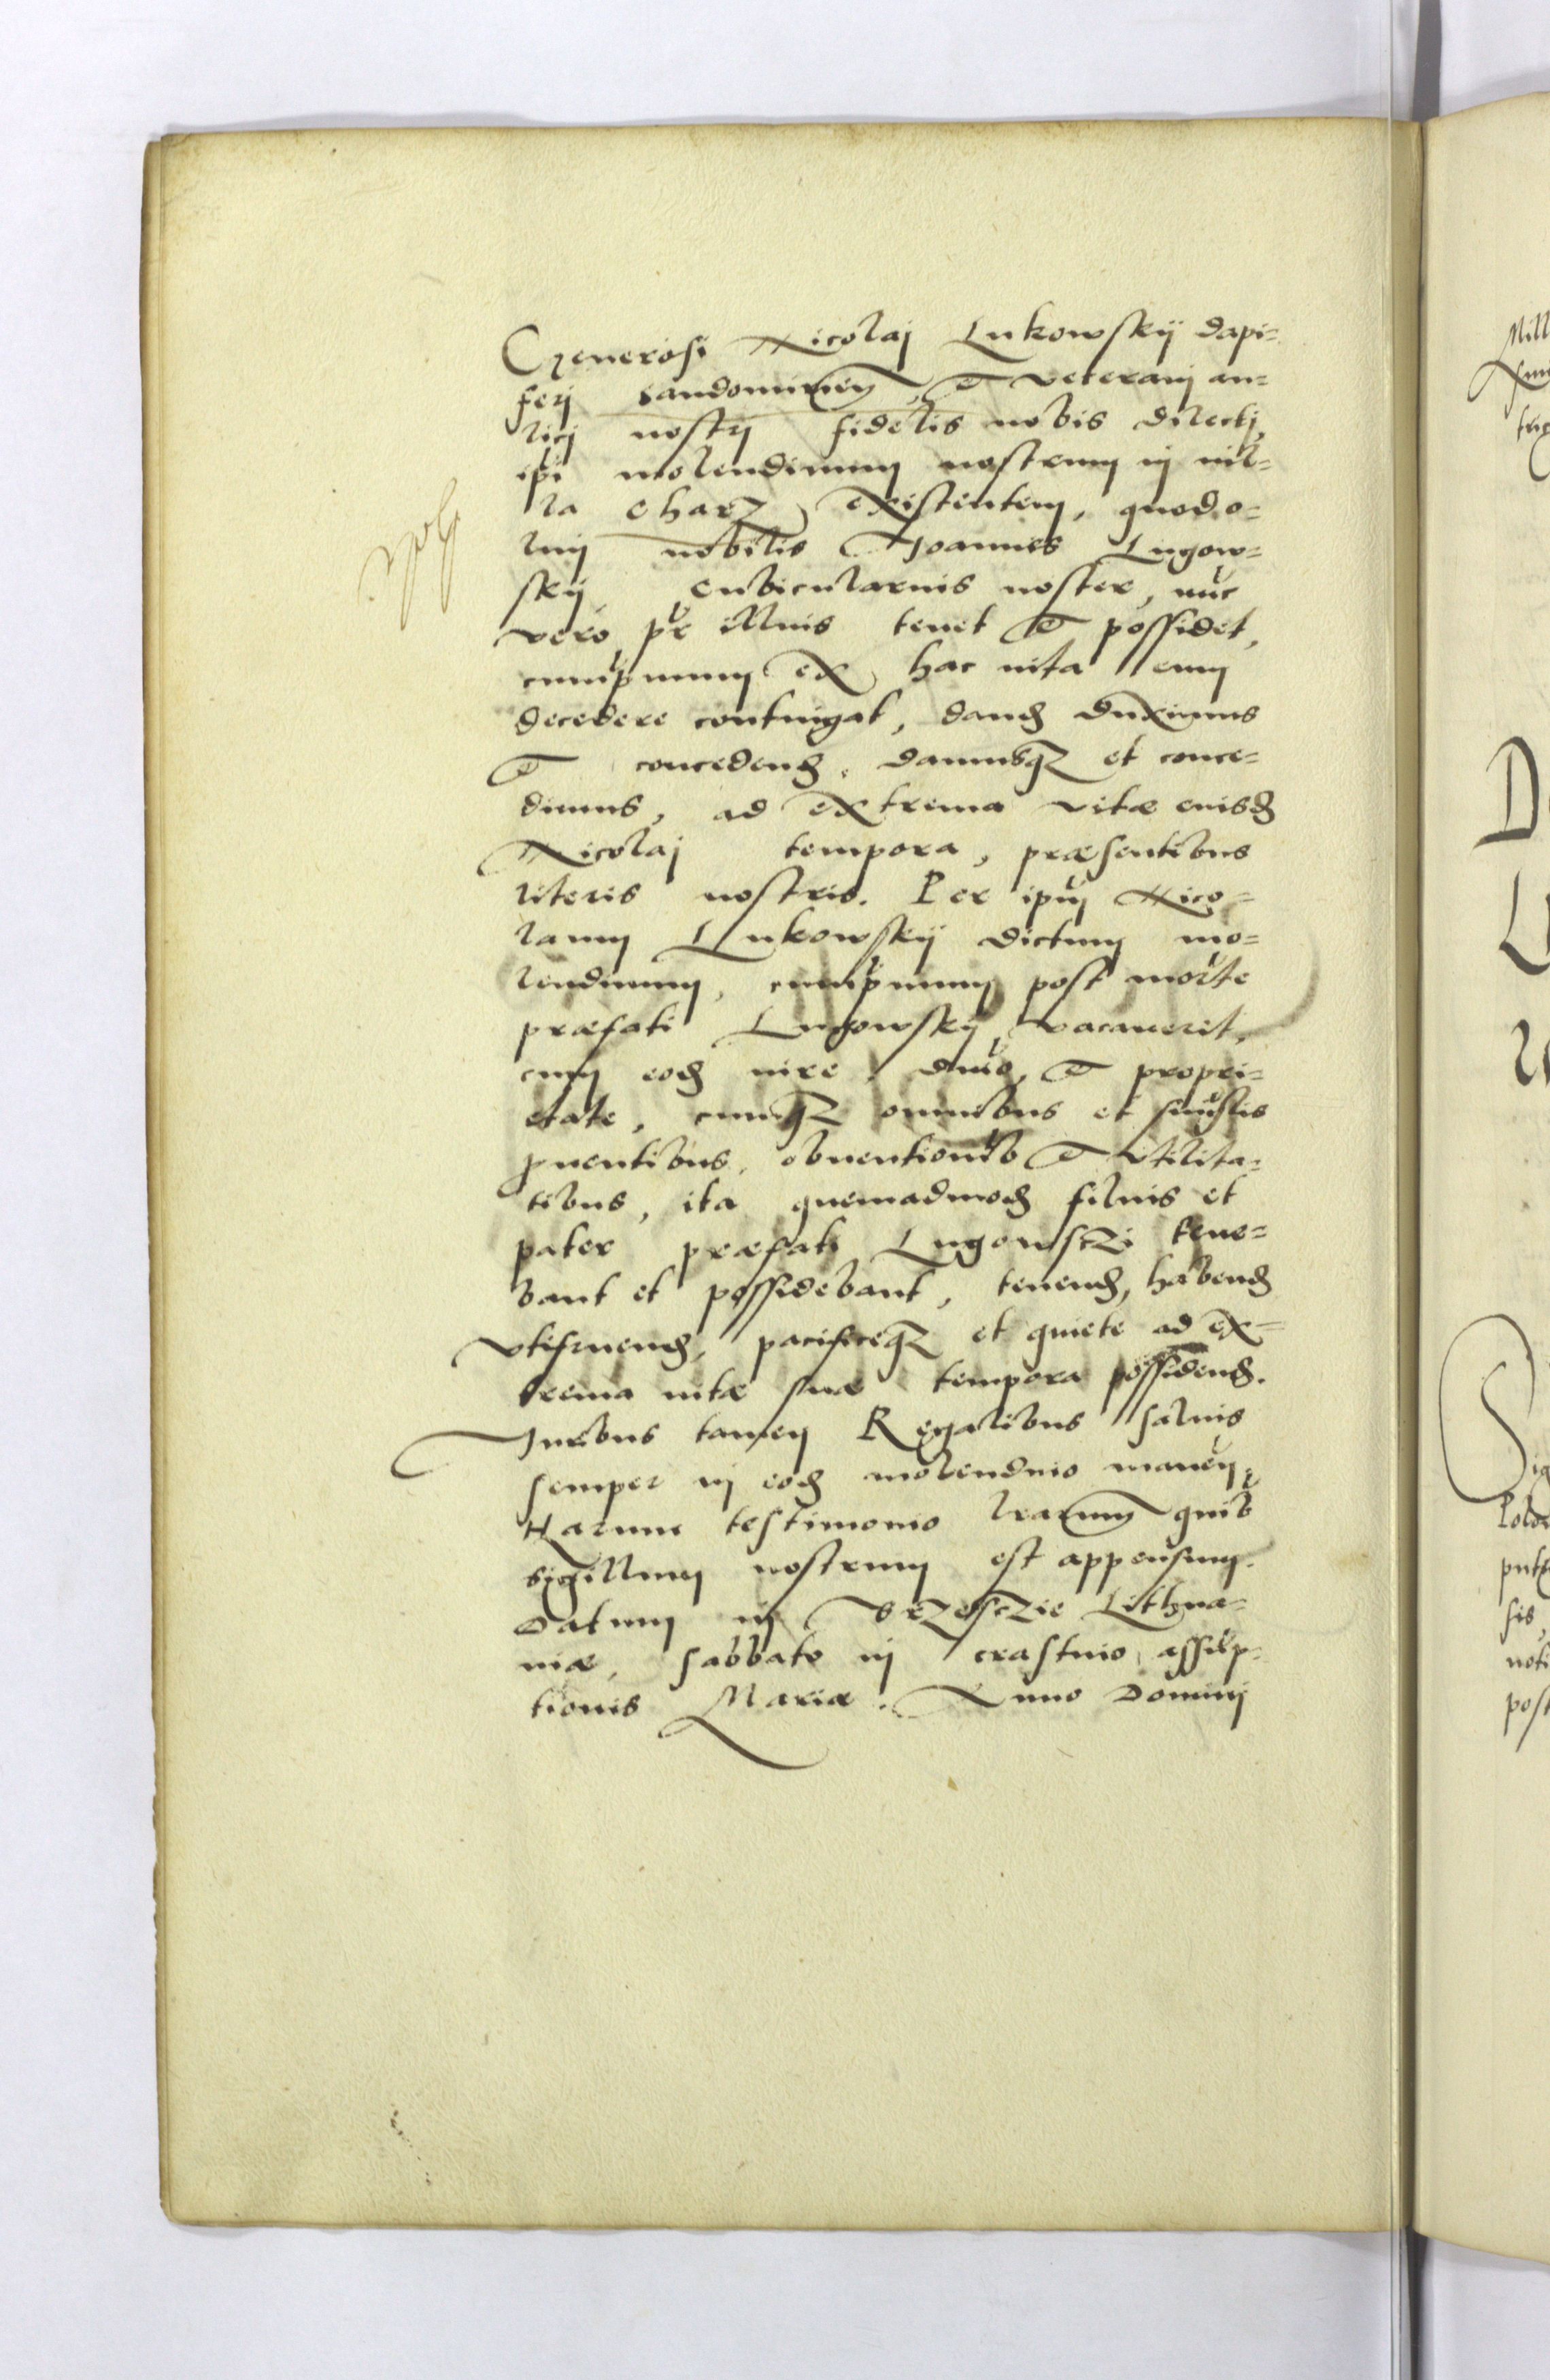 Generosi Nicolaj Lukowskÿ dapi=
ferj Sandomirien, et veteranj au=
licj nostrj fidelis nobis dilectj,
ipi molendinum nostrum in vil=
la Charz existentem, quod o=
lim nobilis Joannes Lugow=
skÿ, cubicularius noster, nuc
vero pr illius tenet et possidet,
cumprimum ex hac vita eum
decedere contingat, dand duximus
et concedend, damusq et conce=
dimus, ad extrema vitæ eiusd
Nicolaj tempora, præsentibus
literis nostris. Per ipum Nico=
laum Lukowskÿ dictum mo=
lendinum, cumprimum post morte
præfati Lugowskÿ vacaverit,
cum eod iure, dnio, et propri=
etate, cumq omnibus et singlis
pventibus, obventionib et vtilita=
tibus, ita quemadmod filius et
pater præfati Lugowsczi tene=
bant et possidebant, tenend, habend
vtifruend, pacificeq et quiete ad ex=
trema vitæ suæ tempora possidend.
Juribus tamen Regalibus salvis
semper in eod molendino manen,
Harum testimonio lrarum quib
sigillum nostrum est appensum.
Datum in Brzesczie Lithua=
niæ, sabbato in crastino assup=
tionis Mariæ. Anno Dominj